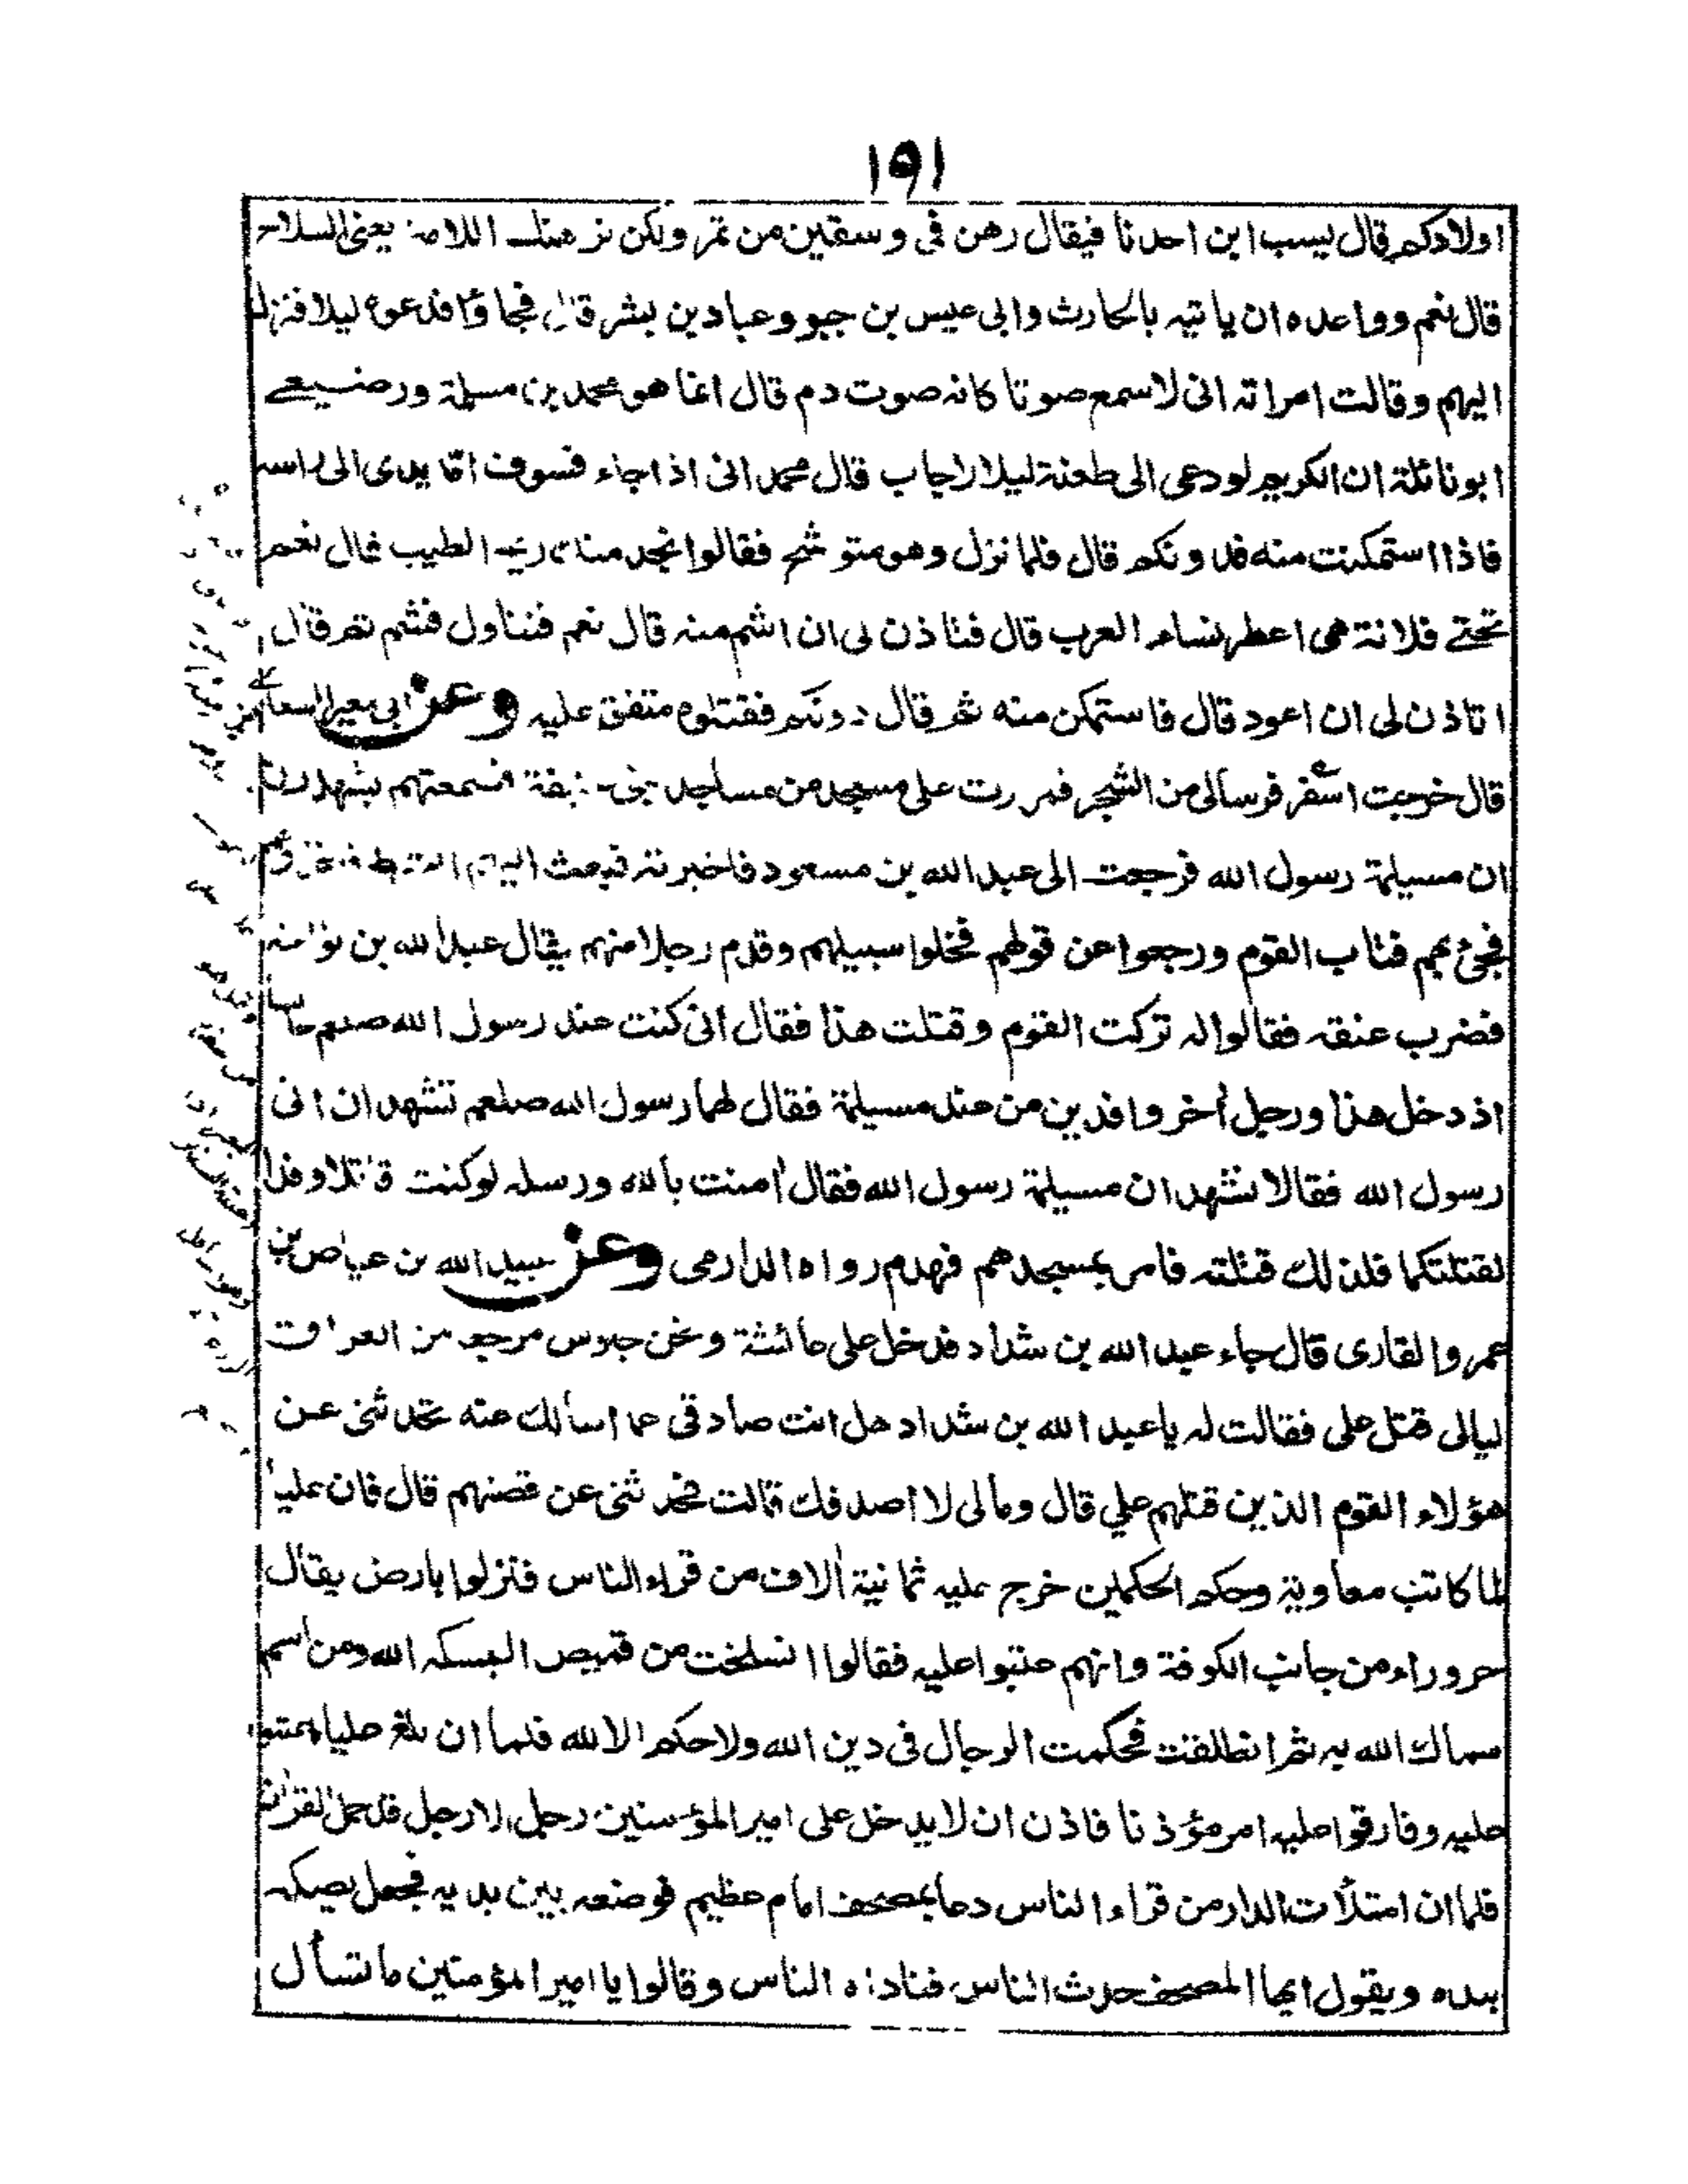 ١٥١
اولادكم قال يسب ابن احدنا فيقال رهن فى وسقين من تمر ولكن نرهنك اللامة يعنى السلاح
قال نعم وواعده ان ياتيه بالحارث وابى عبس بن جبر وعباد بن بشر قال فجاؤا فدعوه ليلا فنزل
اليهم وقالت امراته انى لاسمع صوتا كانه صوت دم قال انما هو محمد بن مسلمة ورضيعے
ابو نائلة ان الكريم لو دعى الى طعنة ليلا لاجاب قال محمد انى اذا جاء فسوف امد يدى الى راسه
فاذا استمكنت منه فدونكم قال فلما نزل وهو متوشح فقالوا نجد منك ريح الطيب قال نعم
تحتے فلانة هى اعطر نساء العرب قال فتاذن لى ان اشم منه قال نعم فتناول فشم ثم قال
اتاذن لى ان اعود قال فاستمكن منه ثم قال دونكم فقتلوه متفق عليه وعن ابى معيز السعدى
قال خرجت اسفر فرسالى من الشجر فمررت على مسجد من مساجد بنى حنيفة فسمعتهم يشهدون
ان مسيلمة رسول الله فرجعت الى عبد الله بن مسعود فاخبرته فبعث اليهم الشرط فاخذوهم
فجئ بهم فتاب القوم ورجعوا عن قولهم فخلوا سبيلهم وقدم رجلا منهم يقال عبد الله بن نواحة
فضرب عنقه فقالوا له تركت القوم وقتلت هذا فقال انى كنت عند رسول الله صلعم جالسا
اذ دخل هذا ورجل اٰخر وافدين من عند مسيلمة فقال لهما رسول الله صلعم تشهدان انى
رسول الله فقالا نشهد ان مسيلمة رسول الله فقال اٰمنت بالله ورسله لو كنت قاتلا وفدا
لقتلتكما فلذلك قتلته فامر بمسجدهم فهدم رواه الدارمى وعن عبيد الله بن عياض بن
عمرو القارى قال جاء عبد الله بن شداد فدخل على عائشة ونحن جلوس مرجعه من العراق
ليالى قتل على فقالت له يا عبد الله بن شداد هل انت صادقى عما اسالك عنه تحدثنى عن
هؤلاء القوم الذين قتلهم علي قال ومالى لا اصدقك قالت فحدثنى عن قصتهم قال فان عليا
لما كاتب معاوية وحكم الحكمين خرج عليه ثمانية اٰلاف من قراء الناس فنزلوا بارض يقال
حروراء من جانب الكوفة وانهم عتبوا عليه فقالوا انسلخت من قميص البسكه الله ومن اسم
سماك الله به ثم انطلقت فحكمت الرجال فى دين الله ولا حكم الا لله فلما ان بلغ عليا ما عتبوا
عليه وفارقوا عليه امر مؤذنا فاذن ان لا يدخل على امير المؤمنين رجل الا رجل قد حمل القراٰن
فلما ان امتلأت الدار من قراء الناس دعا بمصحف امام عظيم فوضعه بين يديه فجعل يصكه
بيده ويقول ايها المصحف حدث الناس فناداه الناس وقالوا يا امير المؤمنين ما تسأل